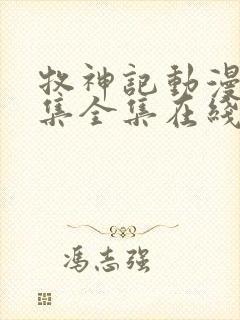 牧神記動漫
集全集在綫
馮志强